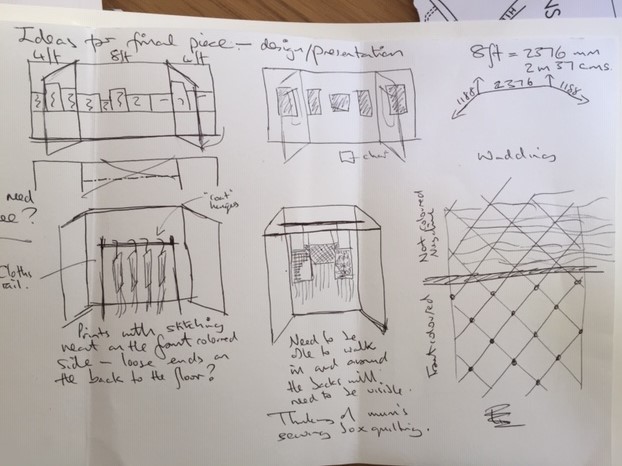 Ideas for final piece - design/presentation
4ft 8ft 4ft
8ft = 2376 mm
2m 37cms.
1188 2376 1188
chair
Wadding
need
"coat"
hangers
Cloths
rail.
Not coloured
Front coloured
Prints with stitching
neat on the front coloured
side - loose ends on
the back to the floor?
Need to be
able to walk
in and around
the backs will
need to be visible.
Thinking of mum's
sewing box quilting.